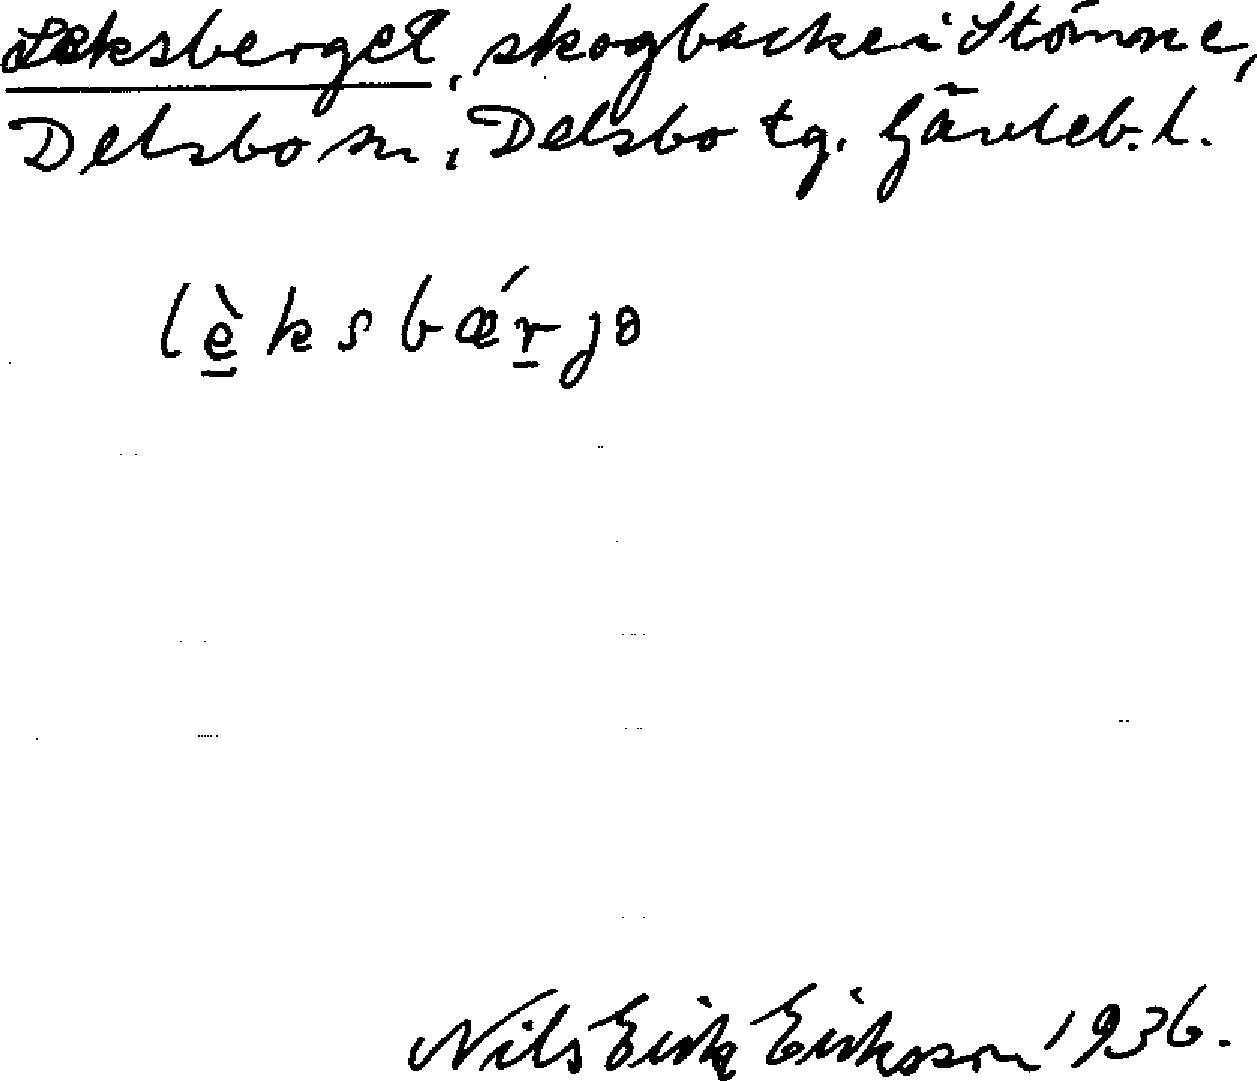 Leksberget, skogbacke i Stömne,
Delsbo sn, Delsbo tg. Gävleb. l.
lèksbǽrjə
Nils Erik Eriksson 1936.